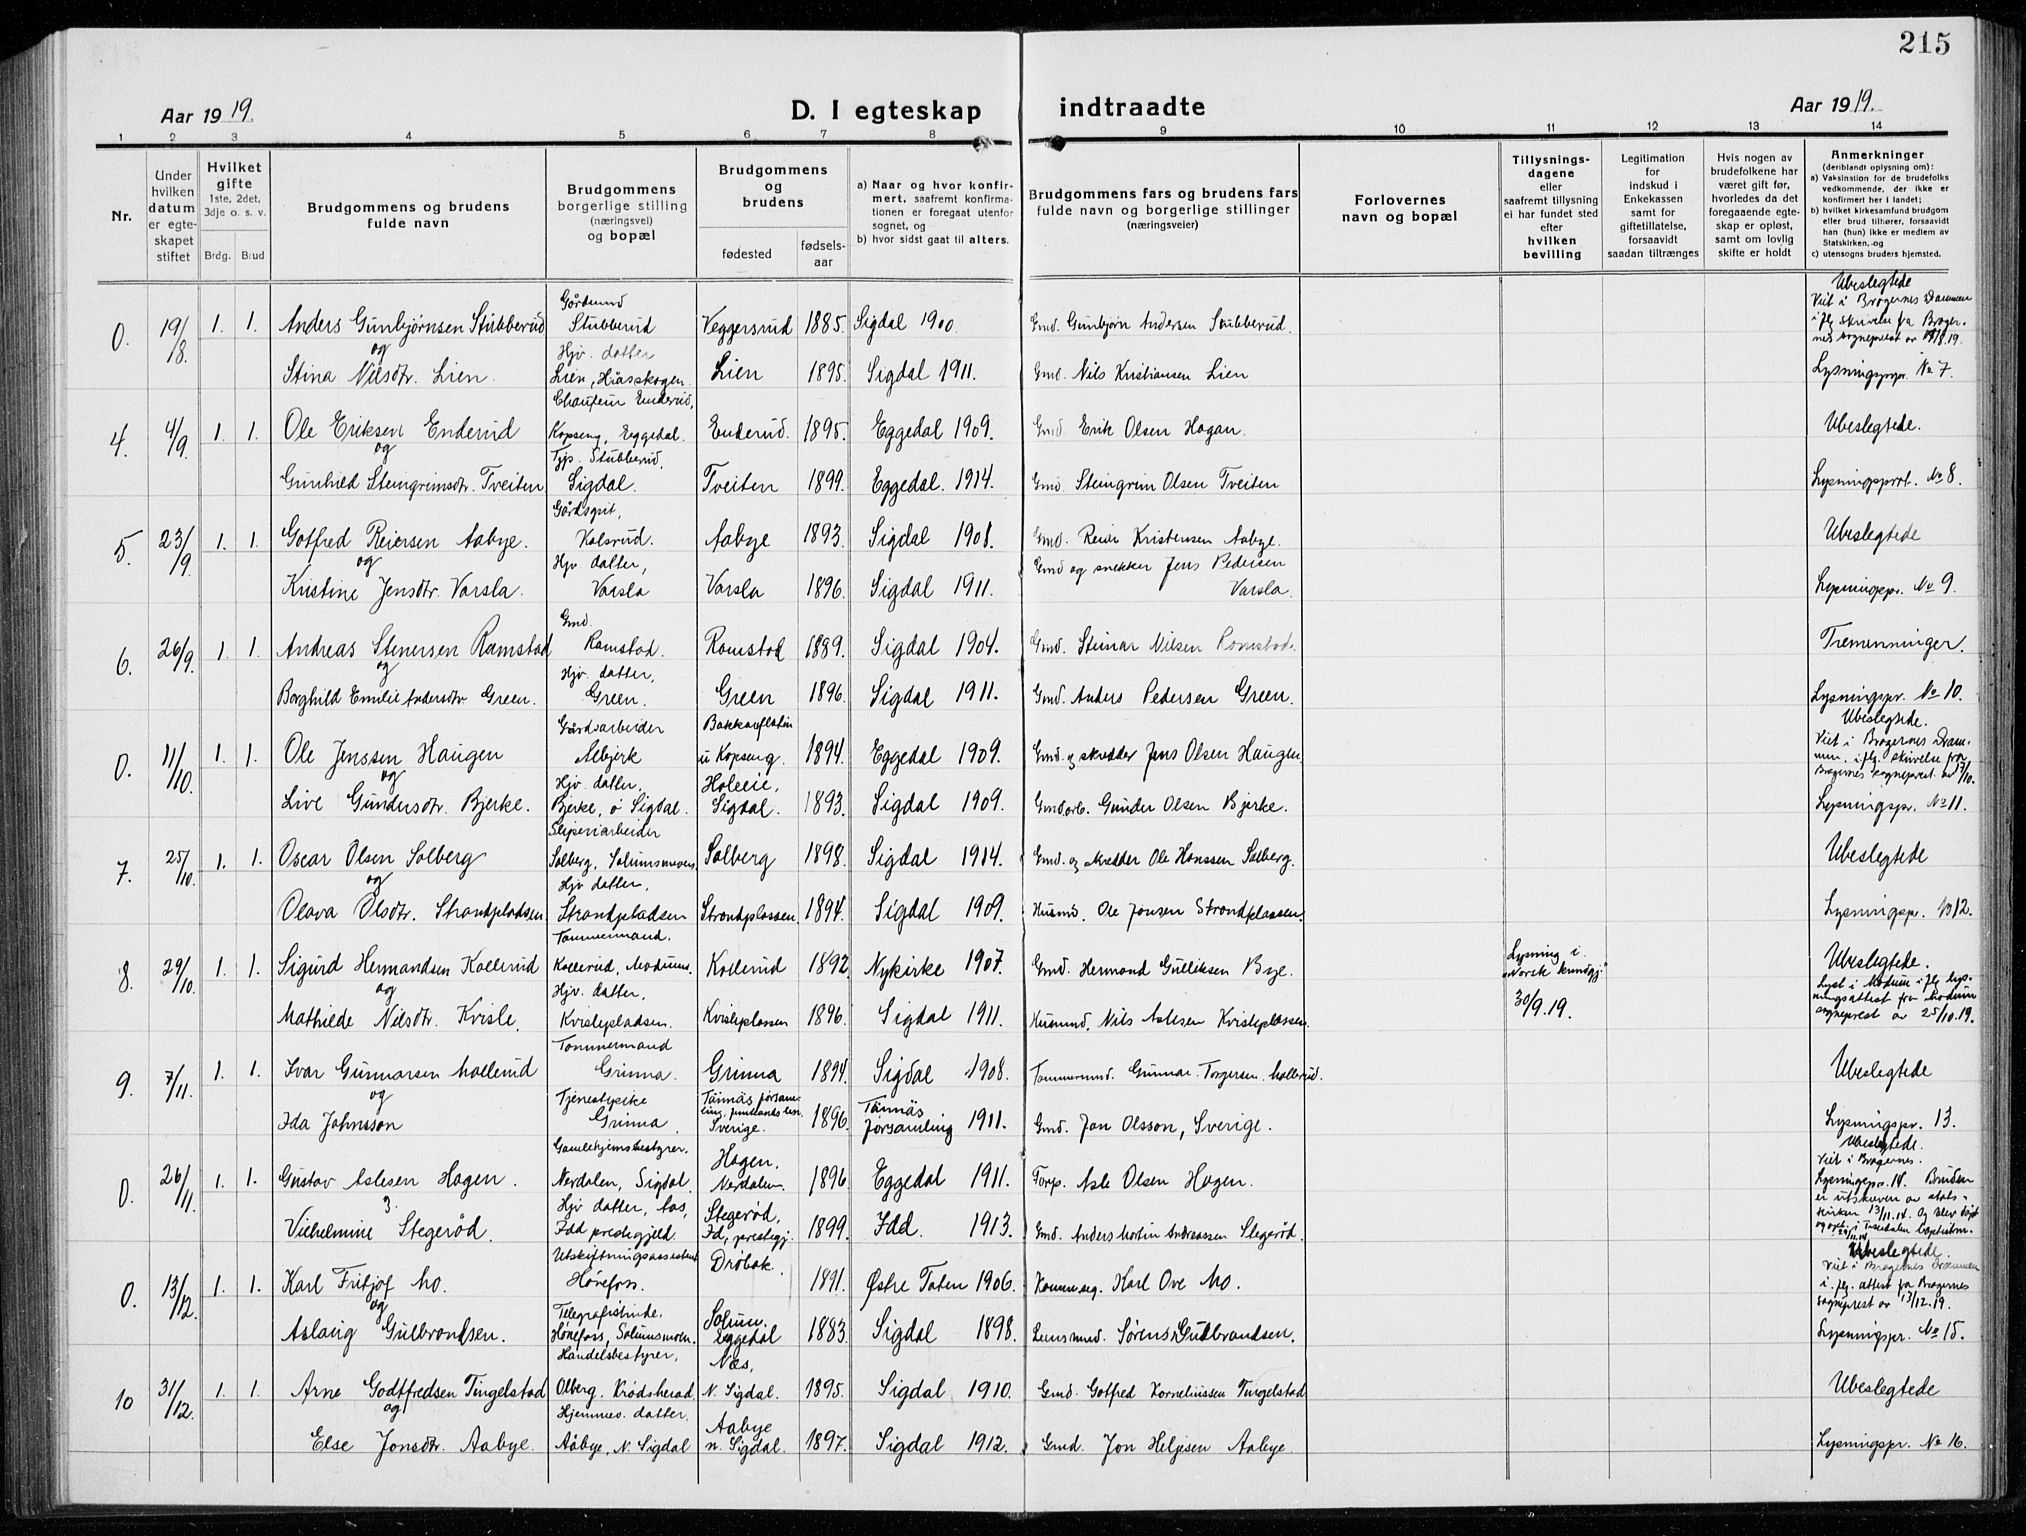 215
Aar 1919.
D. I egteskap indtraadte
Aar 1919.
1 2 3 4 5 6 7 8 9 10 11 12 13 14
Nr.
Under hvilken datum er egteskapet stiftet
Hvilket gifte 1ste, 2det, 3dje o. s. v.
Brdg. Brud
Brudgommens og brudens fulde navn
Brudgommens borgerlige stilling (næringsvei) og bopæl
Brudgommens og brudens
fødested
fødselsaar
a) Naar og hvor konfirmert, saafremt konfirmationen er foregaat utenfor sognet, og
b) hvor sidst gaat til alters.
Brudgommens fars og brudens fars fulde navn og borgerlige stillinger (næringsveier)
Forlovernes navn og bopæl
Tillysningsdagene eller saafremt tillysning ei har fundet sted efter hvilken bevilling
Legitimation for indskud i Enkekassen samt for giftetillatelse, forsaavidt saadan tiltrænges
Hvis nogen av brudefolkene har været gift før, hvorledes da det foregaaende egteskap er opløst, samt om lovlig skifte er holdt
Anmerkninger (deriblandt oplysning om):
a) Vaksination for de brudefolks vedkommende, der ikke er konfirmert her i landet;
b) hvilket kirkesamfund brudgom eller brud tilhører, forsaavidt han (hun) ikke er medlem av Statskirken, og
c) utensogns bruders hjemsted.
0. 19/8. 1. 1. Anders Gunbjørnsen Stubberud Gårdmand Stubberud Veggersrud 1885. Sigdal 1900. Gmd. Gunbjørn Andersen Stubberud. Ubeslegtede Viet i Bragernes Drammen i flg skrivelse fra Bragernes sogneprest av 19/8.19.
og
Stina Nilsdtr. Lien. Hjv. datter Lien, Hiåsskogen. Lien 1895. Sigdal 1911. Gmd. Nils Kristiansen Lien Lysningspr. No 7.
4. 4/9. 1. 1. Ole Eriksen Enderud Chaufeur Enderud, Kopseng, Eggedal. Enderud. 1895. Eggedal 1909. Gmd. Erik Olsen Hagan. Ubeslegtede.
og
Gunhild Steingrimsdtr. Tveiten Tjp. Stubberud, Sigdal. Tveiten 1899. Eggedal. 1914. Gmd. Steingrim Olsen Tveiten Lysningsprot. No 8.
5. 23/9. 1. 1. Gotfred Reiersen Aabye. Gårdsgut, Kolsrud. Aabye 1893. Sigdal 1908. Gmd. Reier Kristensen Aabye. Ubeslegtede
og
Kristine Jensdtr. Varsla. Hjv datter, Varsla Varsla 1896. Sigdal 1911. Gmd og snekker Jens Pedersen Varsla. Lysningspr. No 9.
6. 26/9. 1. 1. Andreas Stenersen Ramstad Gmd. Ramstad. Ramstad 1889. Sigdal 1904. Gmd. Steinar Nilsen Ramstad. Tremenninger.
og
Borghild Emilie Andersdtr. Green. Hjv. datter, Green. Green 1896. Sigdal 1911. Gmd Anders Pedersen Green. Lysningspr. No 10.
0. 11/10. 1. 1. Ole Jenssen Haugen Gårdsarbeider Albjerk u Kopseng. 1894. Eggedal 1909. Gmd. og skredder Jens Olsen Haugen Ubeslegtede. Viet i Bragernes Drammen. i flg. skrivelse fra Bragernes sogneprest av
og
Live Gundersdtr. Bjerke. Hjv. datter, Bjerke, ø Sigdal. Holeie, Sigdal. 1893. Sigdal 1909. Gmd.arb. Gunder Olsen Bjerke. Lysningspr. No 11.
7. 25/10. 1. 1. Oscar Olsen Solberg Sliperiarbeider Solberg, Solumsmoen. Solberg 1898. Sigdal 1914. Gmd. og skredder Ole Hanssen Solberg. Ubeslegtede
og
Olava Olsdtr. Strandpladsen Hjv datter, Strandpladsen Strandplassen 1894. Sigdal 1909. Husmd. Ole Jonsen Strandplassen. Lysningspr. No 12.
8. 29/10. 1. 1. Sigurd Hermandsen Kollerud Tømmermand. Kollerud, Modum. Kollerud 1892. Nykirke 1907. Gmd. Hermand Gulliksen Bye. Lysning i "Norsk kundgj." 30/9.19. Ubeslegtede. Lyst i Modum i flg lysningsattest fra Modum sogneprest av 25/10.19.
og
Mathilde Nilsdtr. Kvisle. Hjv. datter, Kvislepladsen. Kvisleplassen 1896. Sigdal 1911. Husmd. Nils Aslesen Kvisleplassen.
9. 7/11. 1. 1. Ivar Gunnarsen Mollerud Tømmermand Grinna. Grinna 1894. Sigdal 1908. Tømmermd. Gunnar Torgersen Mollerud. Ubeslegtede
og
Ida Johnsson Tjenestepike Grinna. Tännäs forsamling, Jemtlands len. Sverige. 1896. Tännäs forsamling 1911. Gmd. Jon Olsson, Sverige. Lysningspr. 13.
0. 26/11. 1. 1. Gustav Aslesen Hagen. Gamlehjemsbestyrer, Nerdalen, Sigdal. Hagen. Nerdalen. 1896. Eggedal 1911. Forp. Asle Olsen Hagen. Ubeslegtede. Viet i Bragernes. Lysningspr. 14. Bruden er utskreven av statskirken 13/11.14. og blev døpt
Vilhelmine Stegerød. Hjv datter, Aas, Idd prestegjeld. Stegerød, Id, prestegj. 1899. Idd. 1913. Gmd. Anders Martin Andreassen Stegerød.
0. 13/12. 1. 1. Karl Fritjof Mo. Utskiftningsassistent Hønefoss. Drøbak. 1891. Østre Toten 1906. Karl Ove Mo. Ubeslegtede. Viet i Bragernes Drammen i flg. attest fra Bragernes sogneprest av 13/12.19.
og
Aslaug Gulbrandsen. Telegrafistinde. Hønefoss, Solumsmoen. Solum. Eggedal 1883. Sigdal 1898. Lensmd. Sørens Gulbrandsen. Lysningspr. No 15.
10 31/12. 1. 1. Arne Godtfredsen Tingelstad Handelsbestyrer, Olberg, Krødsherad Næs, N. Sigdal. 1895. Sigdal 1910. Gmd. Gotfred Kornelinssen Tingelstad Ubeslegtede
og
Else Jonsdtr. Aabye. Hjemmev. datter, Aabye, N. Sigdal Aabye n. Sigdal. 1897. Sigdal 1912. Gmd. Jon Helgesen Aabye. Lysningspr. No 16.